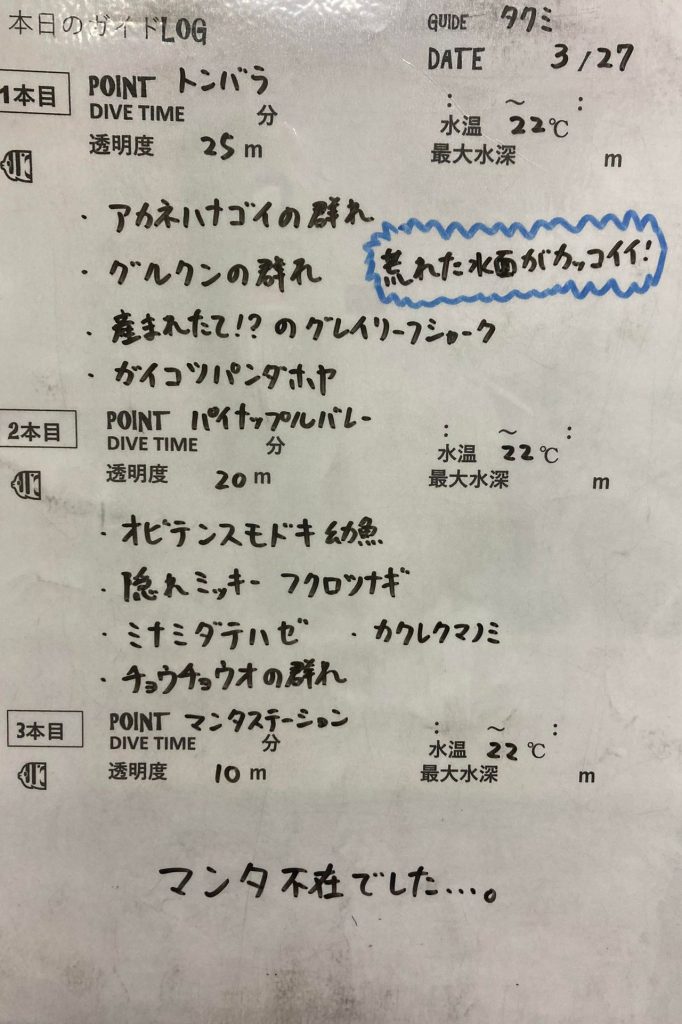 本日のガイドLOG
GUIDE タクミ
DATE 3/27
1本目
POINT トンバラ
DIVE TIME 分 : ～ :
透明度 25 m 水温 22℃
最大水深 m
・アカネハナゴイの群れ
・グルクンの群れ
荒れた水面がカッコイイ!
・産まれたて!?のグレイリーフシャーク
・ガイコツパンダホヤ
2本目
POINT パイナップルバレー
DIVE TIME 分 : ～ :
透明度 20 m 水温 22℃
最大水深 m
・オビテンスモドキ 幼魚
・隠れミッキー フクロツナギ
・ミナミダテハゼ ・カクレクマノミ
・チョウチョウウオの群れ
3本目
POINT マンタステーション
DIVE TIME 分 : ～ :
透明度 10 m 水温 22℃
最大水深 m
マンタ不在でした…。